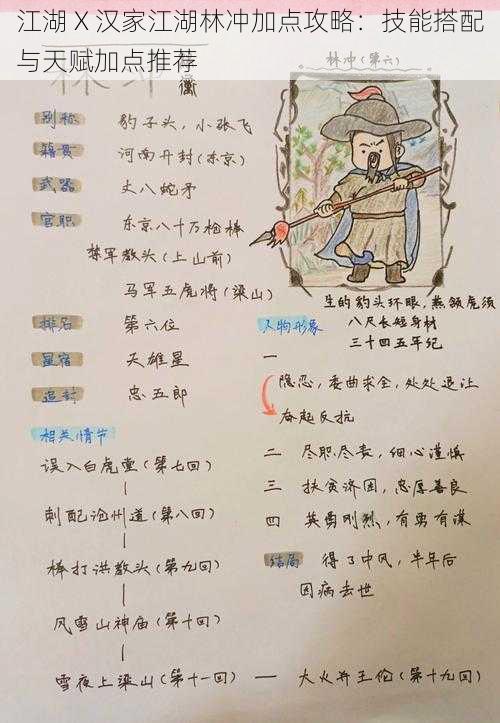 江湖 X 汉家江湖林冲加点攻略：技能搭配
与天赋加点推荐
林冲（第六）
别称 豹子头，小张飞
籍贯 河南开封（东京）
武器 丈八蛇矛
官职 东京八十万枪棒
禁军教头（上山前）
马军五虎将（梁山）
排名 第六位
星宿 天雄星
追封 忠五郎
生的豹头环眼，燕颔虎须
八尺长短身材
三十四五年纪
人物形象
一 隐忍，委曲求全，处处退让
奋起反抗
二 尽职尽责，细心谨慎
三 扶贫济困，忠厚善良
四 英勇刚烈，有勇有谋
结局 得了中风，半年后
因病去世
相关情节
误入白虎堂（第七回）
刺配沧州道（第八回）
棒打洪教头（第九回）
风雪山神庙（第十回）
雪夜上梁山（第十一回） — 大火并王伦（第十九回）